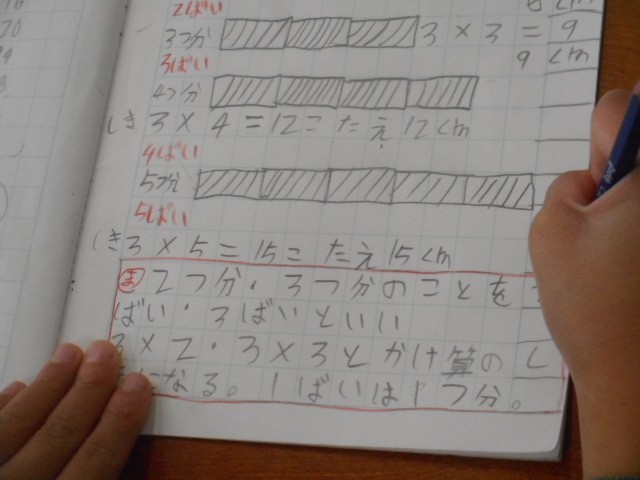 2ばい
3つ分 3×3=9
9cm
3ばい
4つ分
しき 3×4=12こたえ12cm
4ばい
5つ分
5ばい
しき3×5=15こたえ15cm
ま 2つ分・3つ分のことを
ばい・3ばいといい
3×2・3×3とかけ算のし
になる。1ばいは1つ分。